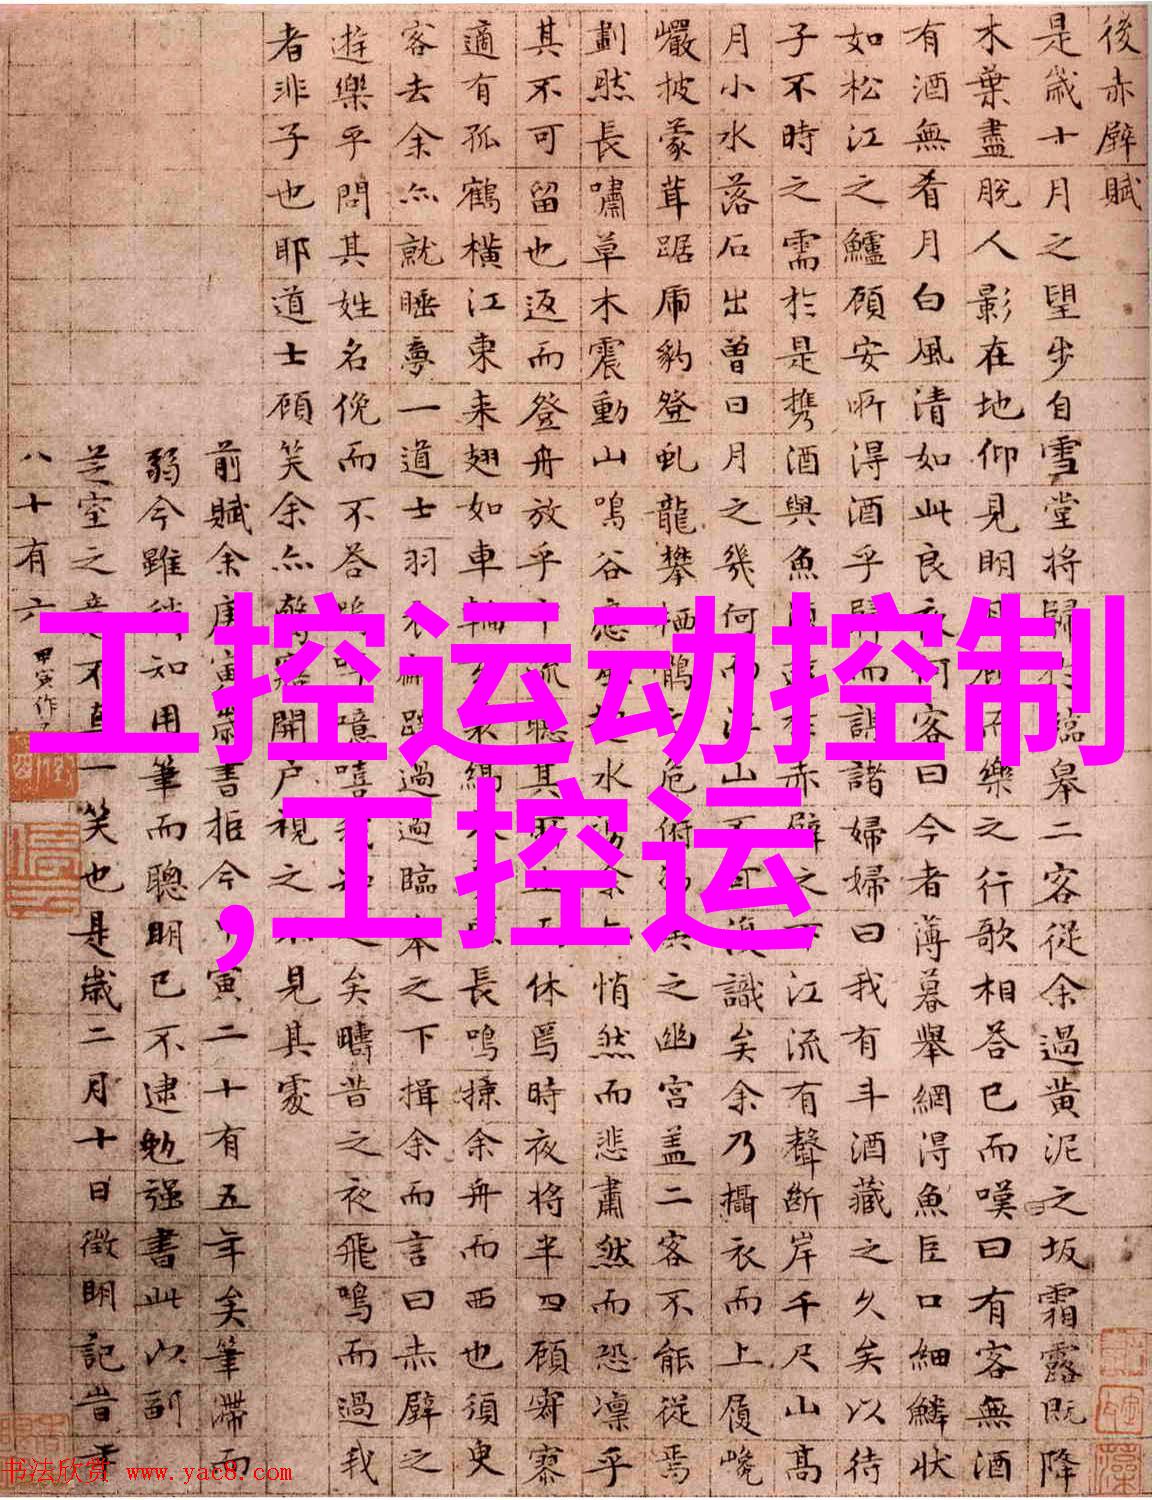 後赤壁賦
是歲十月之望步自雪堂將歸於臨皋二客從余過黄泥之坂霜露既降
木葉盡脱人影在地仰見明月顧而樂之行歌相答已而嘆曰有客無酒
有酒無肴月白風清如此良夜何客曰今者薄暮舉網得魚巨口細鱗狀
如松江之鱸顧安所得酒乎歸而謀諸婦婦曰我有斗酒藏之久矣以待
子不時之需於是携酒與魚復遊於赤壁之下江流有聲斷岸千尺山高
月小水落石出曾日月之幾何而江山不可復識矣余乃攝衣而上履巉
巖披蒙茸踞虎豹登虬龍攀栖鶻之危俯馮夷之幽宮盖二客不能從焉
劃然長嘯草木震動山鳴谷應風起水涌余亦悄然而悲肅然而恐凛乎
其不可留也返而登舟放乎中流聽其所止而休焉時夜將半四顧寂寥
適有孤鶴橫江東来翅如車輪玄裳縞衣戛然長鳴掠余舟而西也須臾
客去余亦就睡夢一道士羽衣翩躚過臨皋之下揖余而言曰赤壁之
遊樂乎問其姓名俛而不答嗚呼噫嘻我知之矣疇昔之夜飛鳴而過我
者非子也耶道士顧笑余亦驚寤開户視之不見其處
前賦余庚寅歲書拒今甲寅二十有五年矣筆滯而
弱今雖稍知用筆而聰明已不逮勉强書此以副
芝室之意不直一笑也是歲二月十日徵明記昔年
八十有六
甲寅作
工控运动控制
,工控运
书法欣赏 www.yac8.com